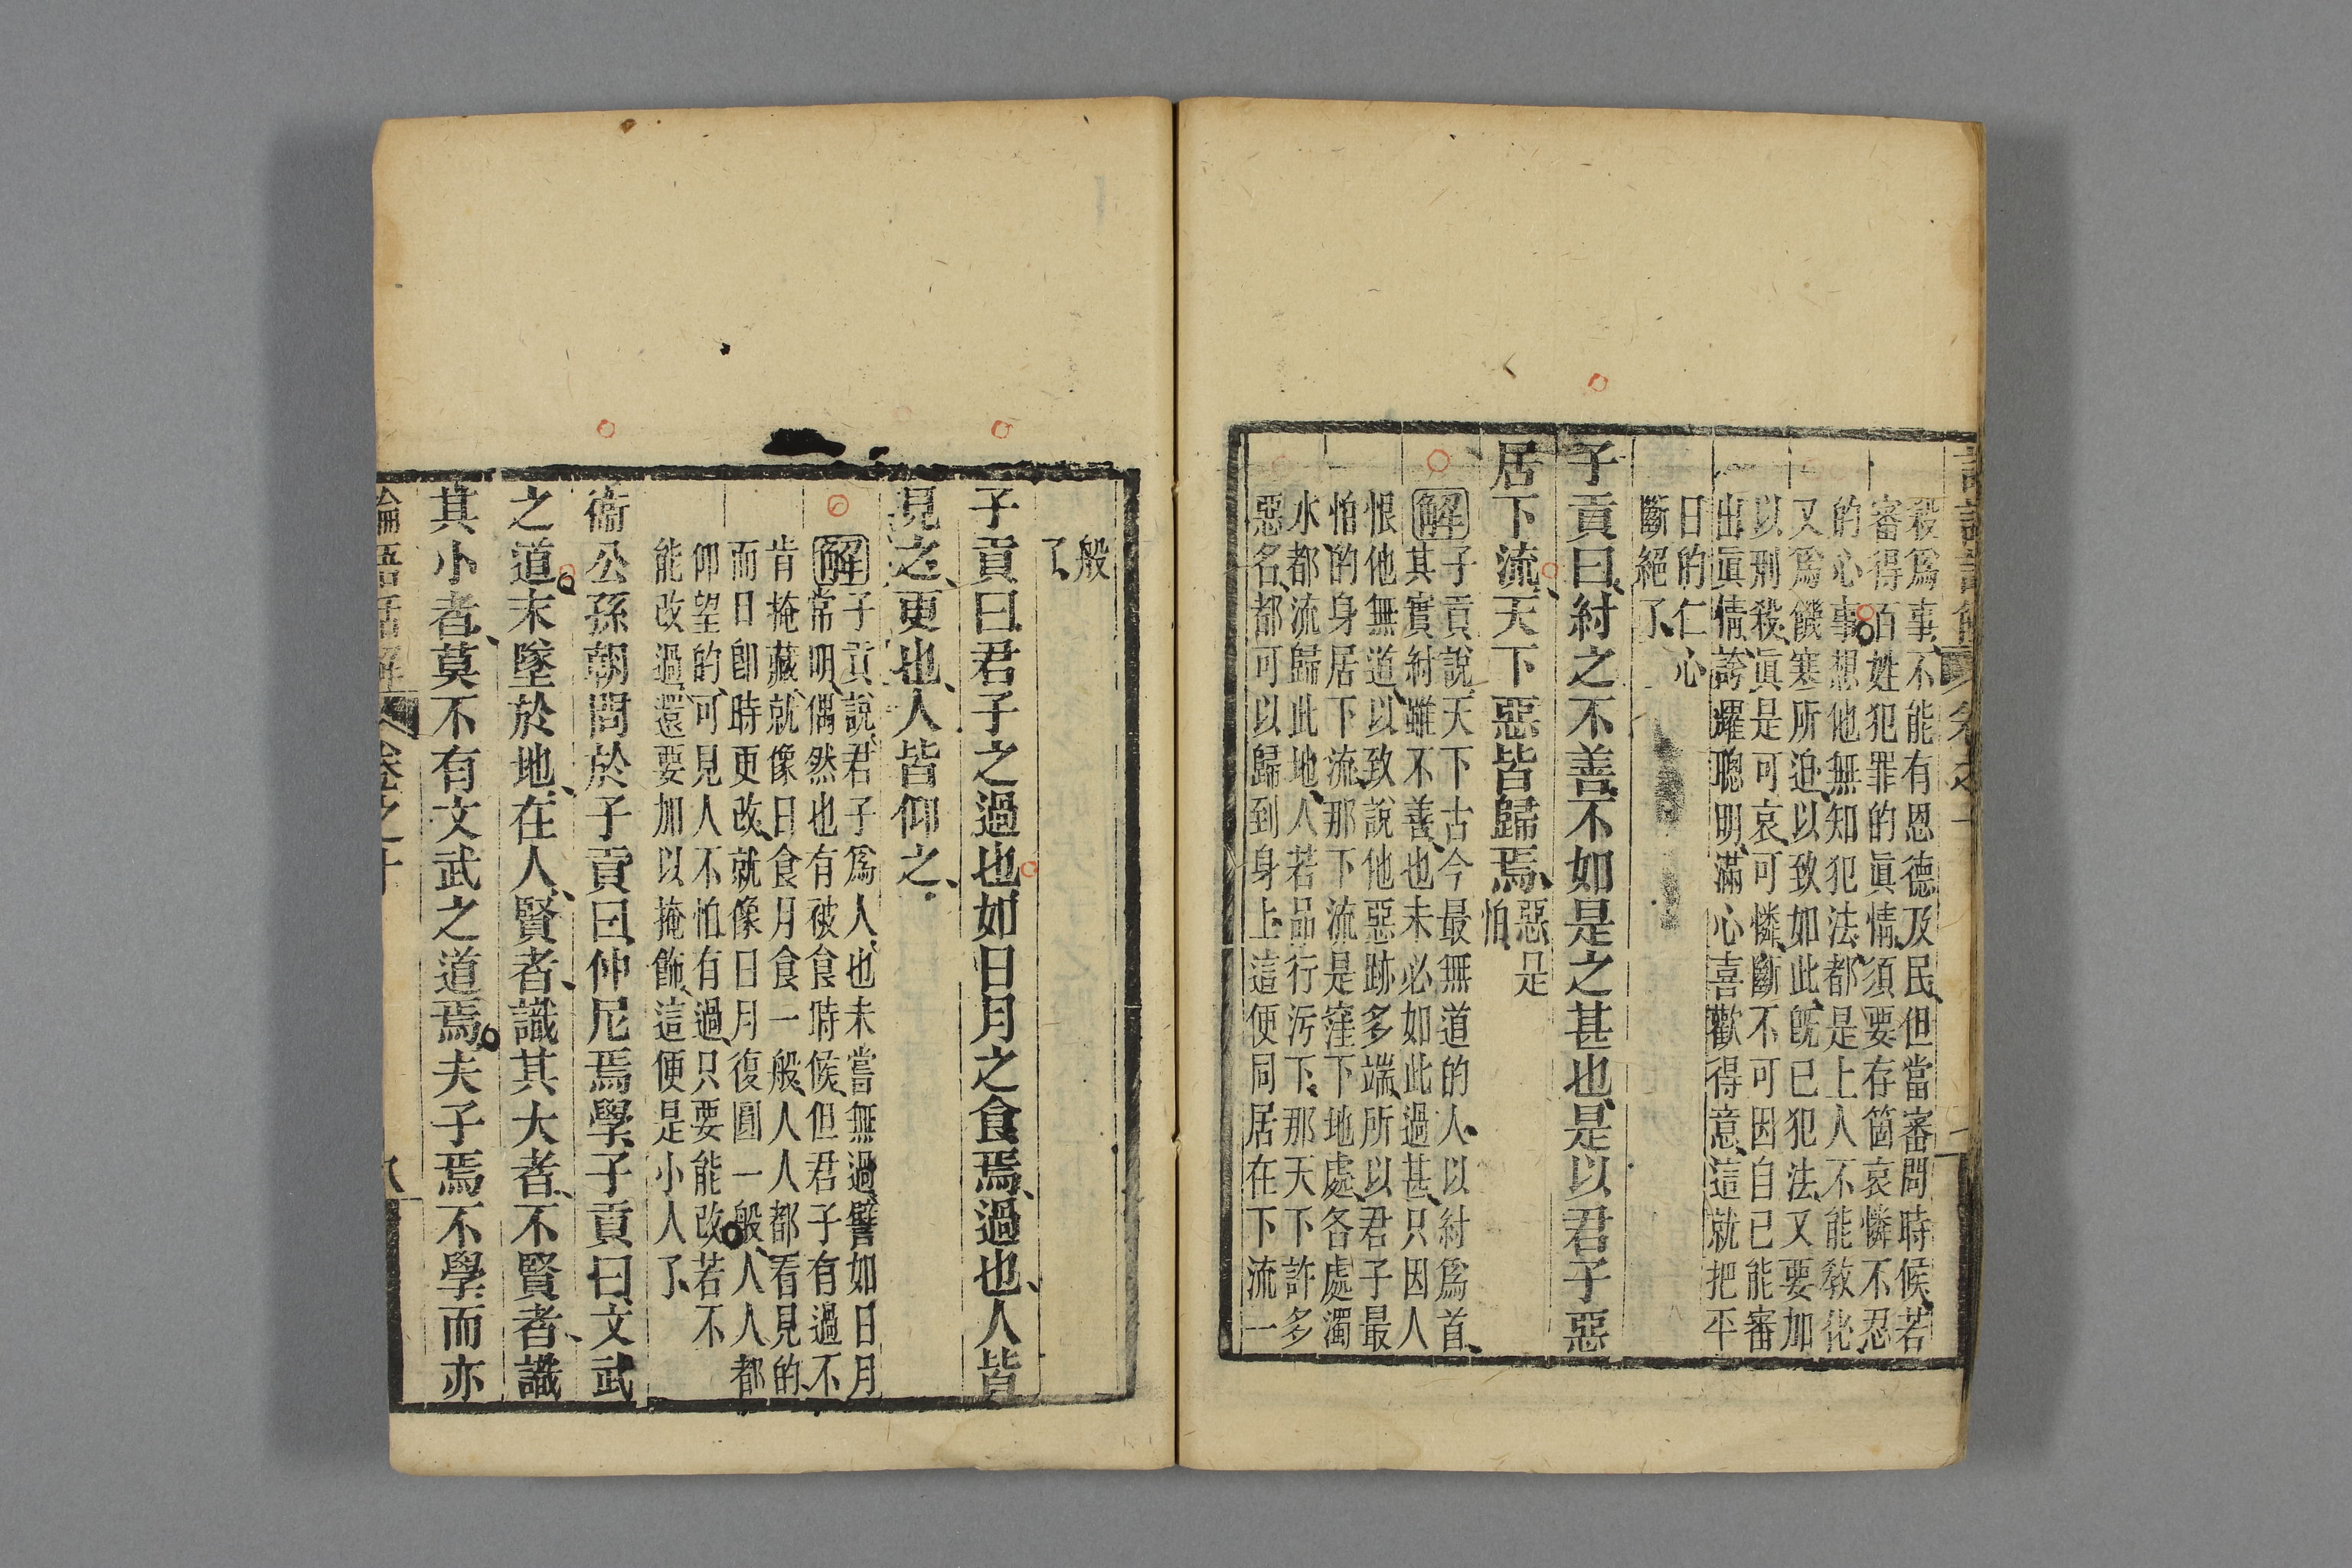 殺爲事、不能有恩德及民、但當審問時候、若
審得百姓犯罪的眞情、須要存箇哀憐不忍
的心事想他無知犯法、都是上人不能敎化、
又爲饑寒所迫、以致如此、旣已犯法、又要加
以刑殺、眞是可哀、可憐、斷不可因自已能審
出眞情、誇耀聰明、滿心喜歡得意、這就把平
日的仁心
斷絕了、
子貢曰、紂之不善、不如是之甚也、是以君子惡
居下流、天下惡皆歸焉、惡、是
怕、
解子貢說、天下古今最無道的人、以紂爲首、
其實紂雖不善、也未必如此過甚、只因人
恨他無道、以致說他惡跡多端、所以君子最
怕的身居下流、那下流是窪下地處、各處濁
水都流歸此地、人若品行污下、那天下許多
惡名、都可以歸到身上、這便同居在下流一
般
了、
子貢曰君子之過也如日月之食焉、過也、人皆
見之、更也、人皆仰之、
解子貢說、君子爲人、也未嘗無過、譬如日月
常明、偶然也有破食時候、但君子有過不
肯掩藏、就像日食月食一般、人人都看見的、
而日卽時更改、就像日月復圓一般、人人都
仰望的、可見人不怕有過、只要能改、若不
能改過、還要加以掩飾、這便是小人了、
衞公孫朝問於子貢曰、仲尼焉學、子貢曰、文武
之道末墜於地、在人、賢者、識其大者、不賢者、識
其小者、莫不有文武之道焉夫子焉不學、而亦
論語話解 卷之十 八